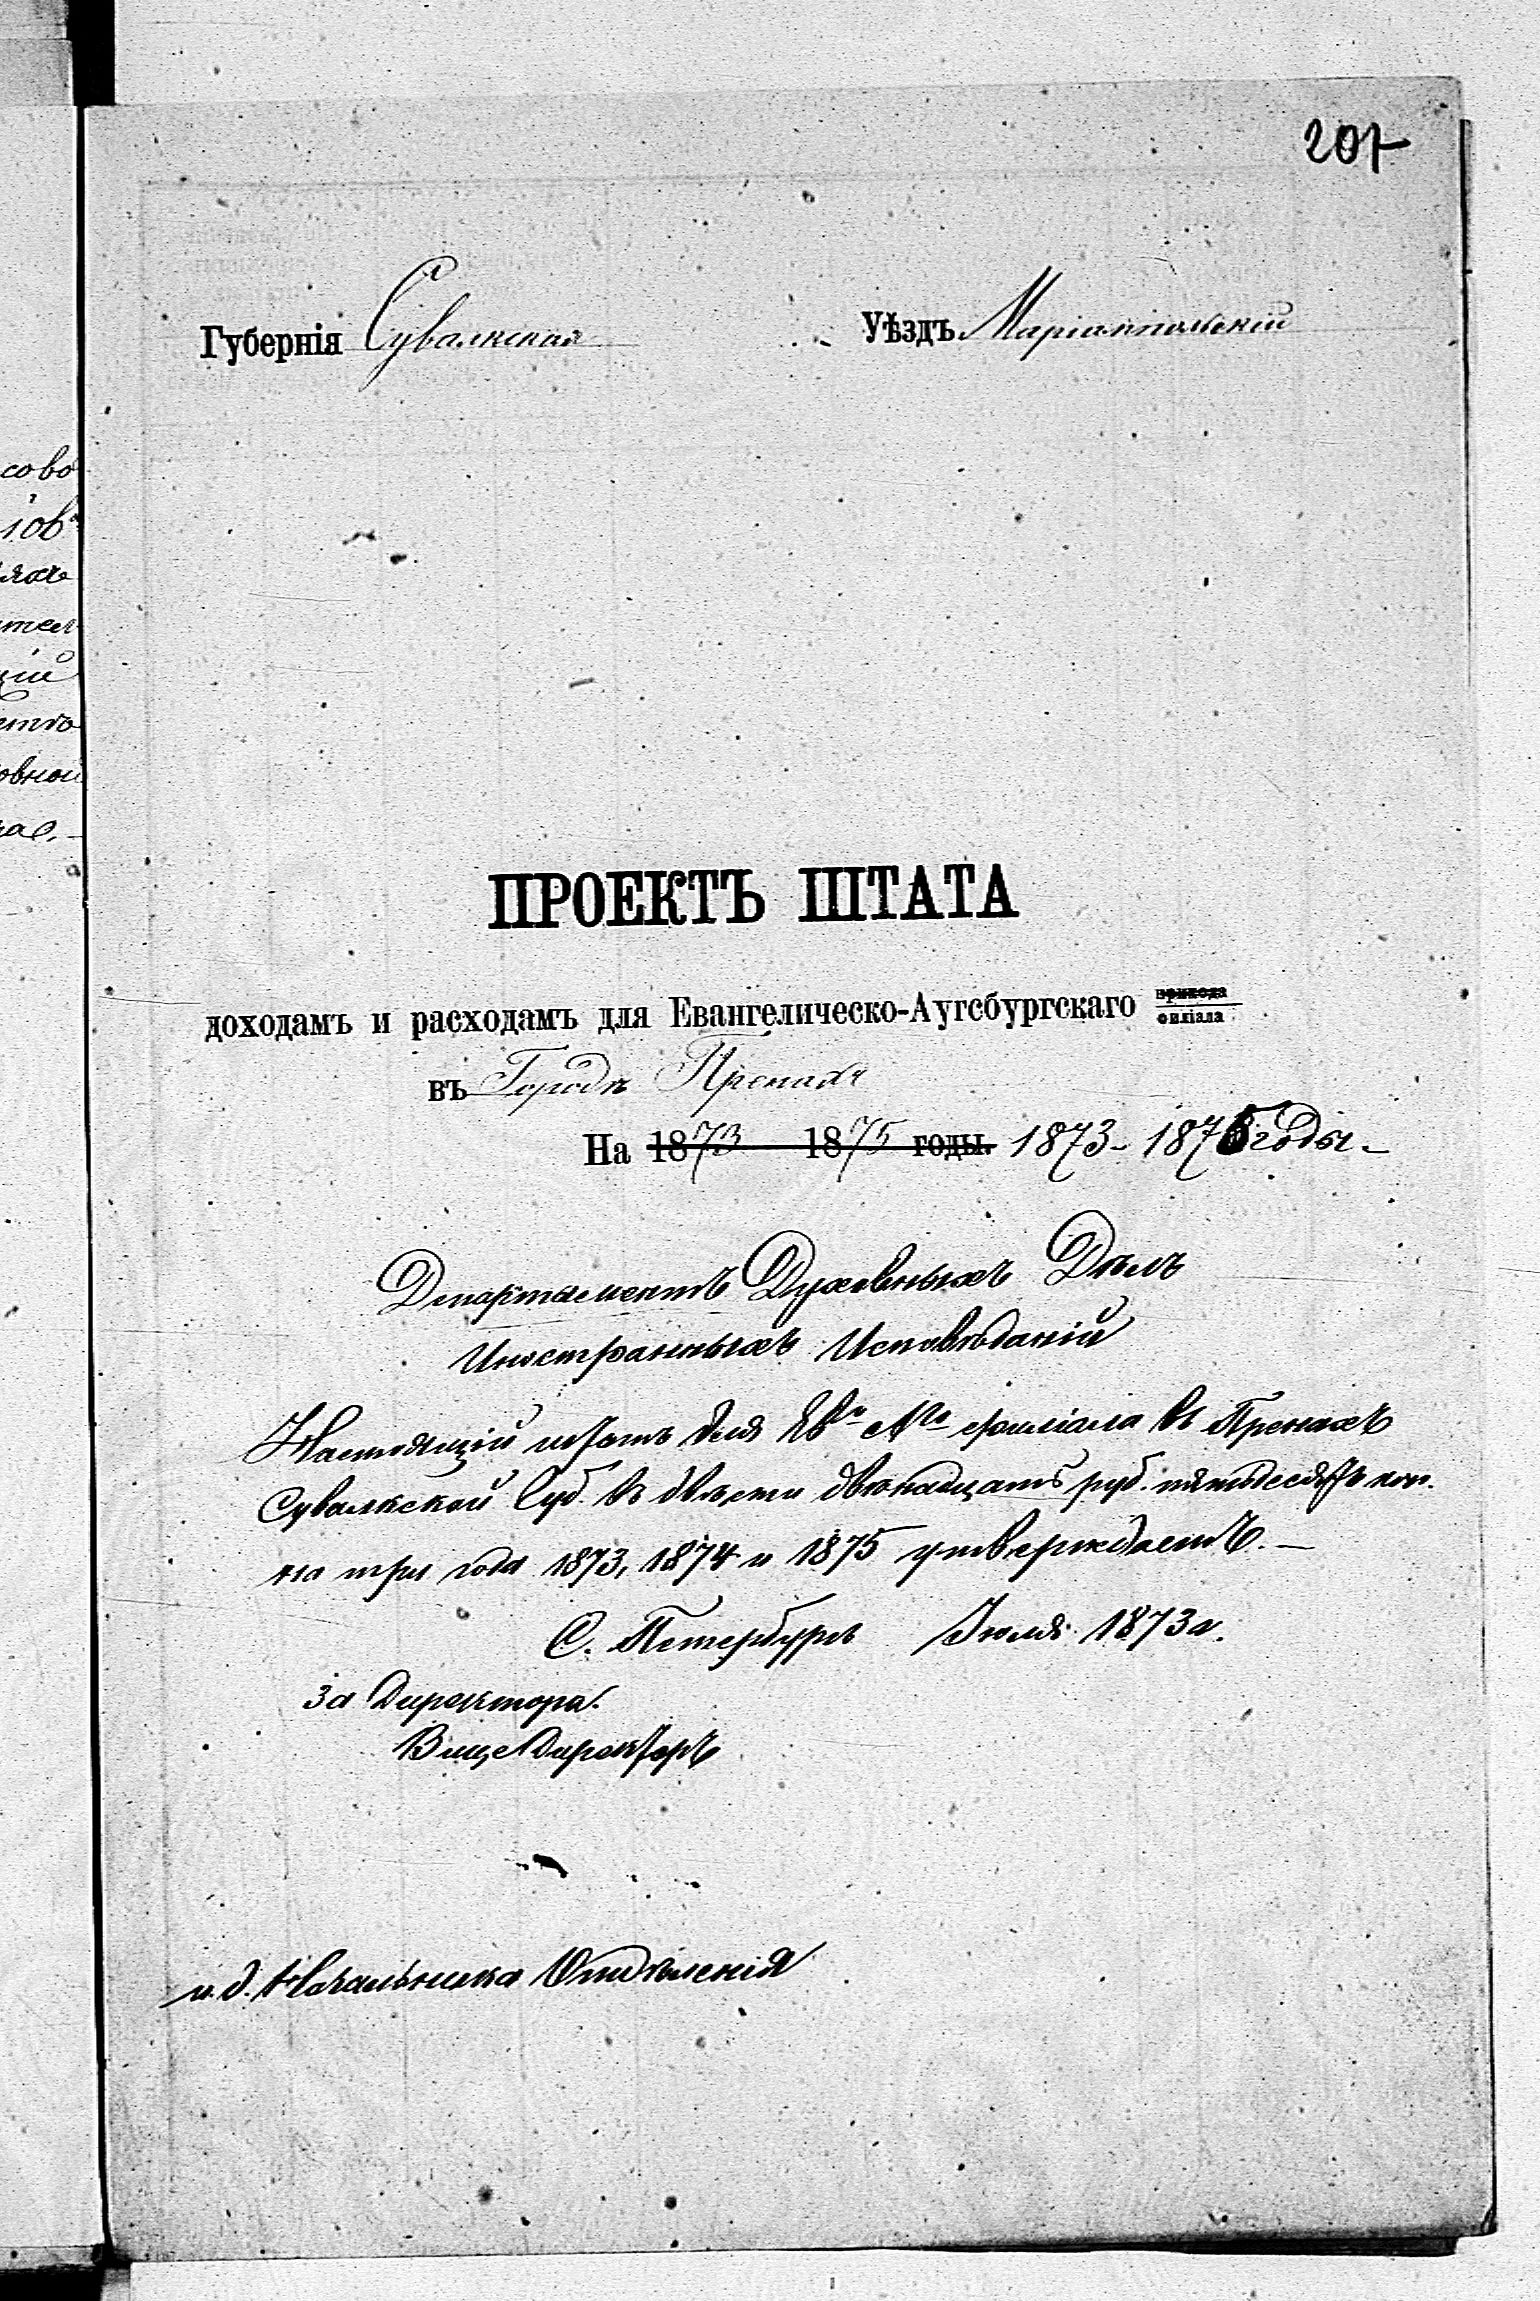 207
Губернія Сувалкская Уѣздъ Маріампольскій
ПРОЕКТЪ ШТАТА
доходамъ и расходамъ для Евангелическо-Аугсбургскаго прихода
филіала
въ Городѣ Пренахъ
На 1873 1875 годы. 1873-1875 годы.-
Департаментъ Духовныхъ Дѣлъ
Иностранныхъ Исповѣданій
Настоящій штатъ для Ев. Аг. филіала въ Пренахъ
Сувалкской Губ. въ двѣсти двѣнадцать руб. пятьдесятъ коп.
на три года 1873, 1874 и 1875 утверждаетъ.-
С. Петербургъ Іюля 1873 г.
За Директора.
Вице Директоръ
и. д. Начальника Отдѣленія